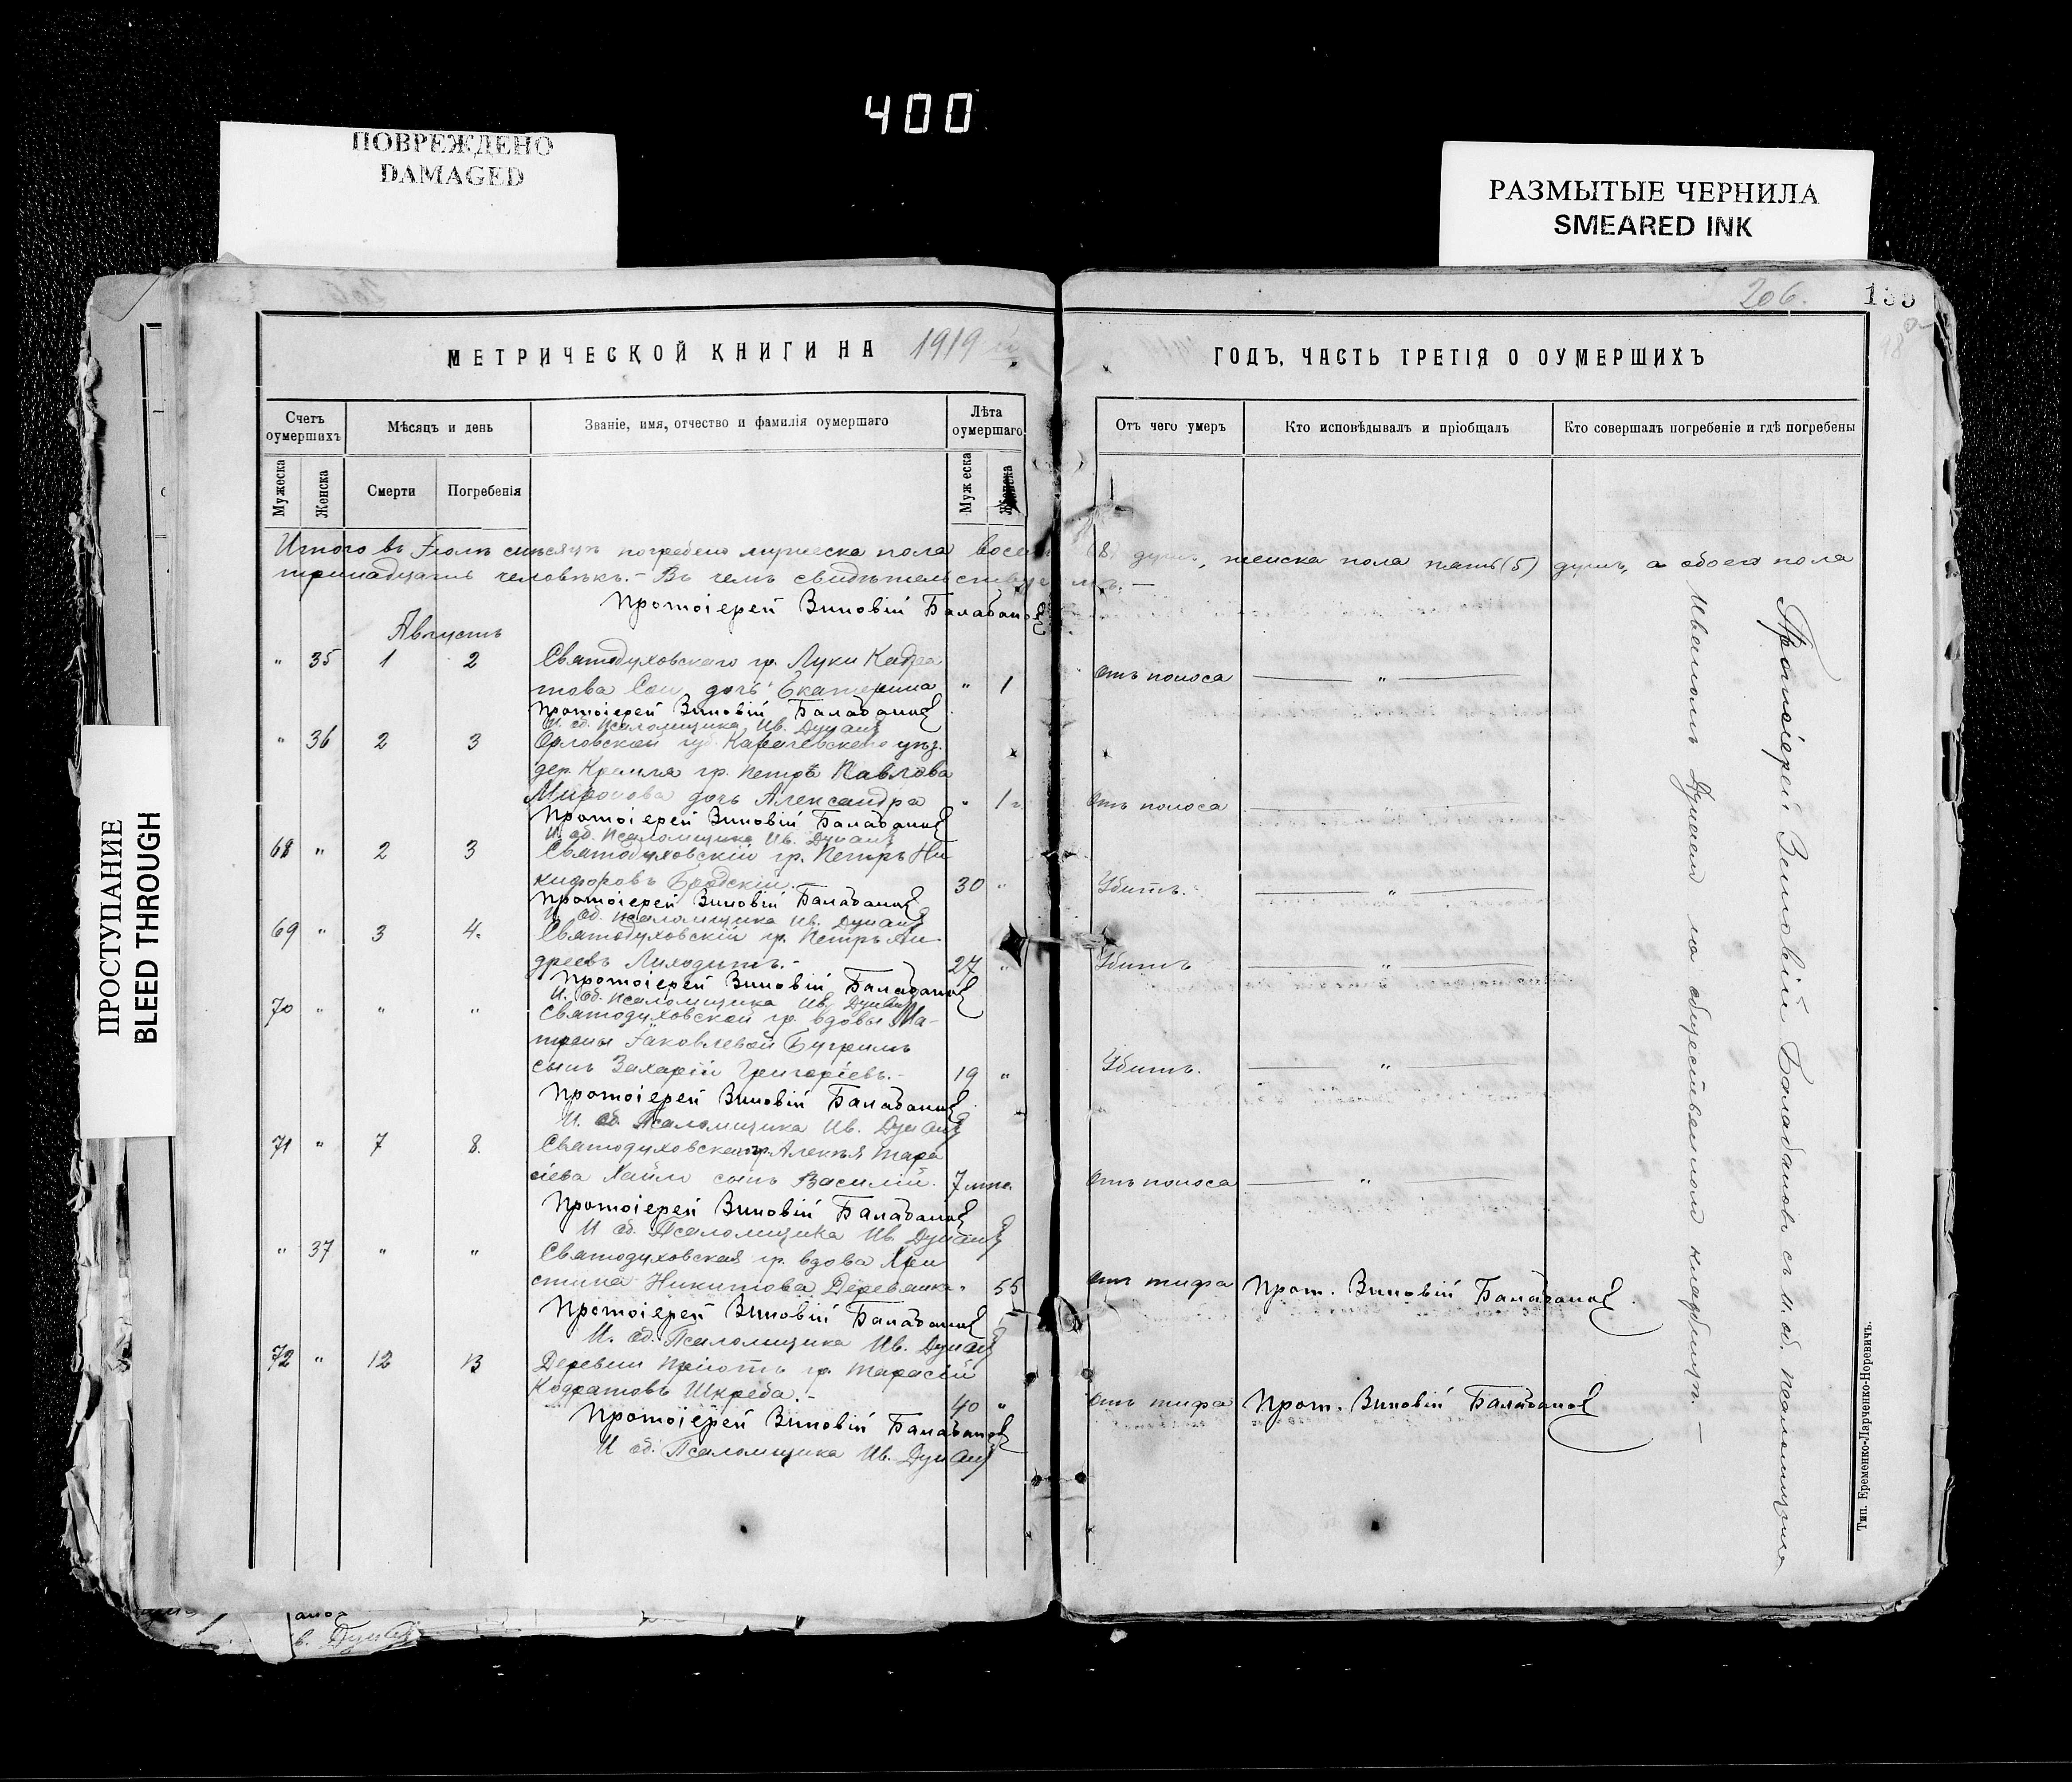 400
ПОВРЕЖДЕНО
DAMAGED
РАЗМЫТЫЕ ЧЕРНИЛА
SMEARED INK
ПРОСТУПАНИЕ
BLEED THROUGH
206.
МЕТРИЧЕСКОЙ КНИГИ НА 1919
ГОДЪ, ЧАСТЬ ТРЕТІЯ О ОУМЕРШИХЪ
Счетъ оумершихъ
Мѣсяцъ и день
Званіе, имя, отчество и фамилія оумершаго
Лѣта оумершаго
Отъ чего умеръ
Кто исповѣдывалъ и пріобщалъ
Кто совершалъ погребеніе и гдѣ погребены
Мужеска
Женска
Смерти
Погребенія
Мужеска
Женска
Итого въ Іюлѣ мѣсяцѣ погребено мужеска пола восемь (8) душъ, женска пола пять (5) душъ, а обоего пола
тринадцать человѣкъ. - Въ чемъ свидѣтельствуемъ. —
Протоіерей Зиновій Балабановъ
Августъ
" 35 1 2 Святодуховскаго гр. Луки Кодра
това дочь Екатерина " 1 отъ поноса "
Протоіерей Зиновій Балабановъ
И. об. Псаломщика Ив. Дунаи
" 36 2 3 Орловской губ. Карачевскаго уѣз.
дер. гр. Петра Павлова
Миронова дочь Александра " 1 отъ поноса "
Протоіерей Зиновій Балабановъ
И. об. Псаломщика Ив. Дунаи
68 " 2 3 Святодуховскій гр. Петръ Ни
кифоровъ Бродскій. 30 " Убитъ. "
Протоіерей Зиновій Балабановъ
И. об. Псаломщика Ив. Дунаи
69 " 3 4. Святодуховскій гр. Петръ Ан-
дреевъ 27 " Убитъ "
Протоіерей Зиновій Балабановъ
И. об. Псаломщика Ив. Дунаи
70 " " " Святодуховской гр. вдовы Ма-
троны Іаковлевой
сынъ Захарій Григоріевъ. - 19 " Убитъ. "
Протоіерей Зиновій Балабановъ
И. об. Псаломщика Ив. Дунаи
71 " 7 8. Святодуховскаго гр. Алексѣя Тара
сіева сынъ Василій. 7 отъ поноса "
Протоіерей Зиновій Балабановъ
И об. Псаломщика Ив. Дунаи
" 37 " " Святодуховская гр. вдова Хри
стина Никитова Деревянка. 55 отъ тифа Прот. Зиновій Балабановъ
Протоіерей Зиновій Балабановъ
И. об. Псаломщика Ив. Дунаи
72 " 12 13 Деревни Пріютъ гр. Тарасій
Кодратовъ Шкреба. - 40 " отъ тифа Прот. Зиновій Балабановъ
Протоіерей Зиновій Балабановъ
И об. Псаломщика Ив. Дунаи
Протоіерей Зиновій Балабановъ съ и. об. псаломщика
Иваномъ Дунаемъ на общественномъ кладбищѣ. —
Тип. Еременко-Ларченко-Норевичъ.